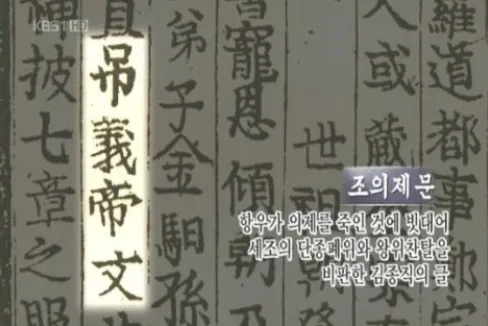 KBS1HD
羅道都事
人或
世祖
寵恩傾朝乃
弟子金馹孫
吊義帝文
披七章之
조의제문
항우가 의제를 죽인 것에 빗대어
세조의 단종폐위와 왕위찬탈을
비판한 김종직의 글